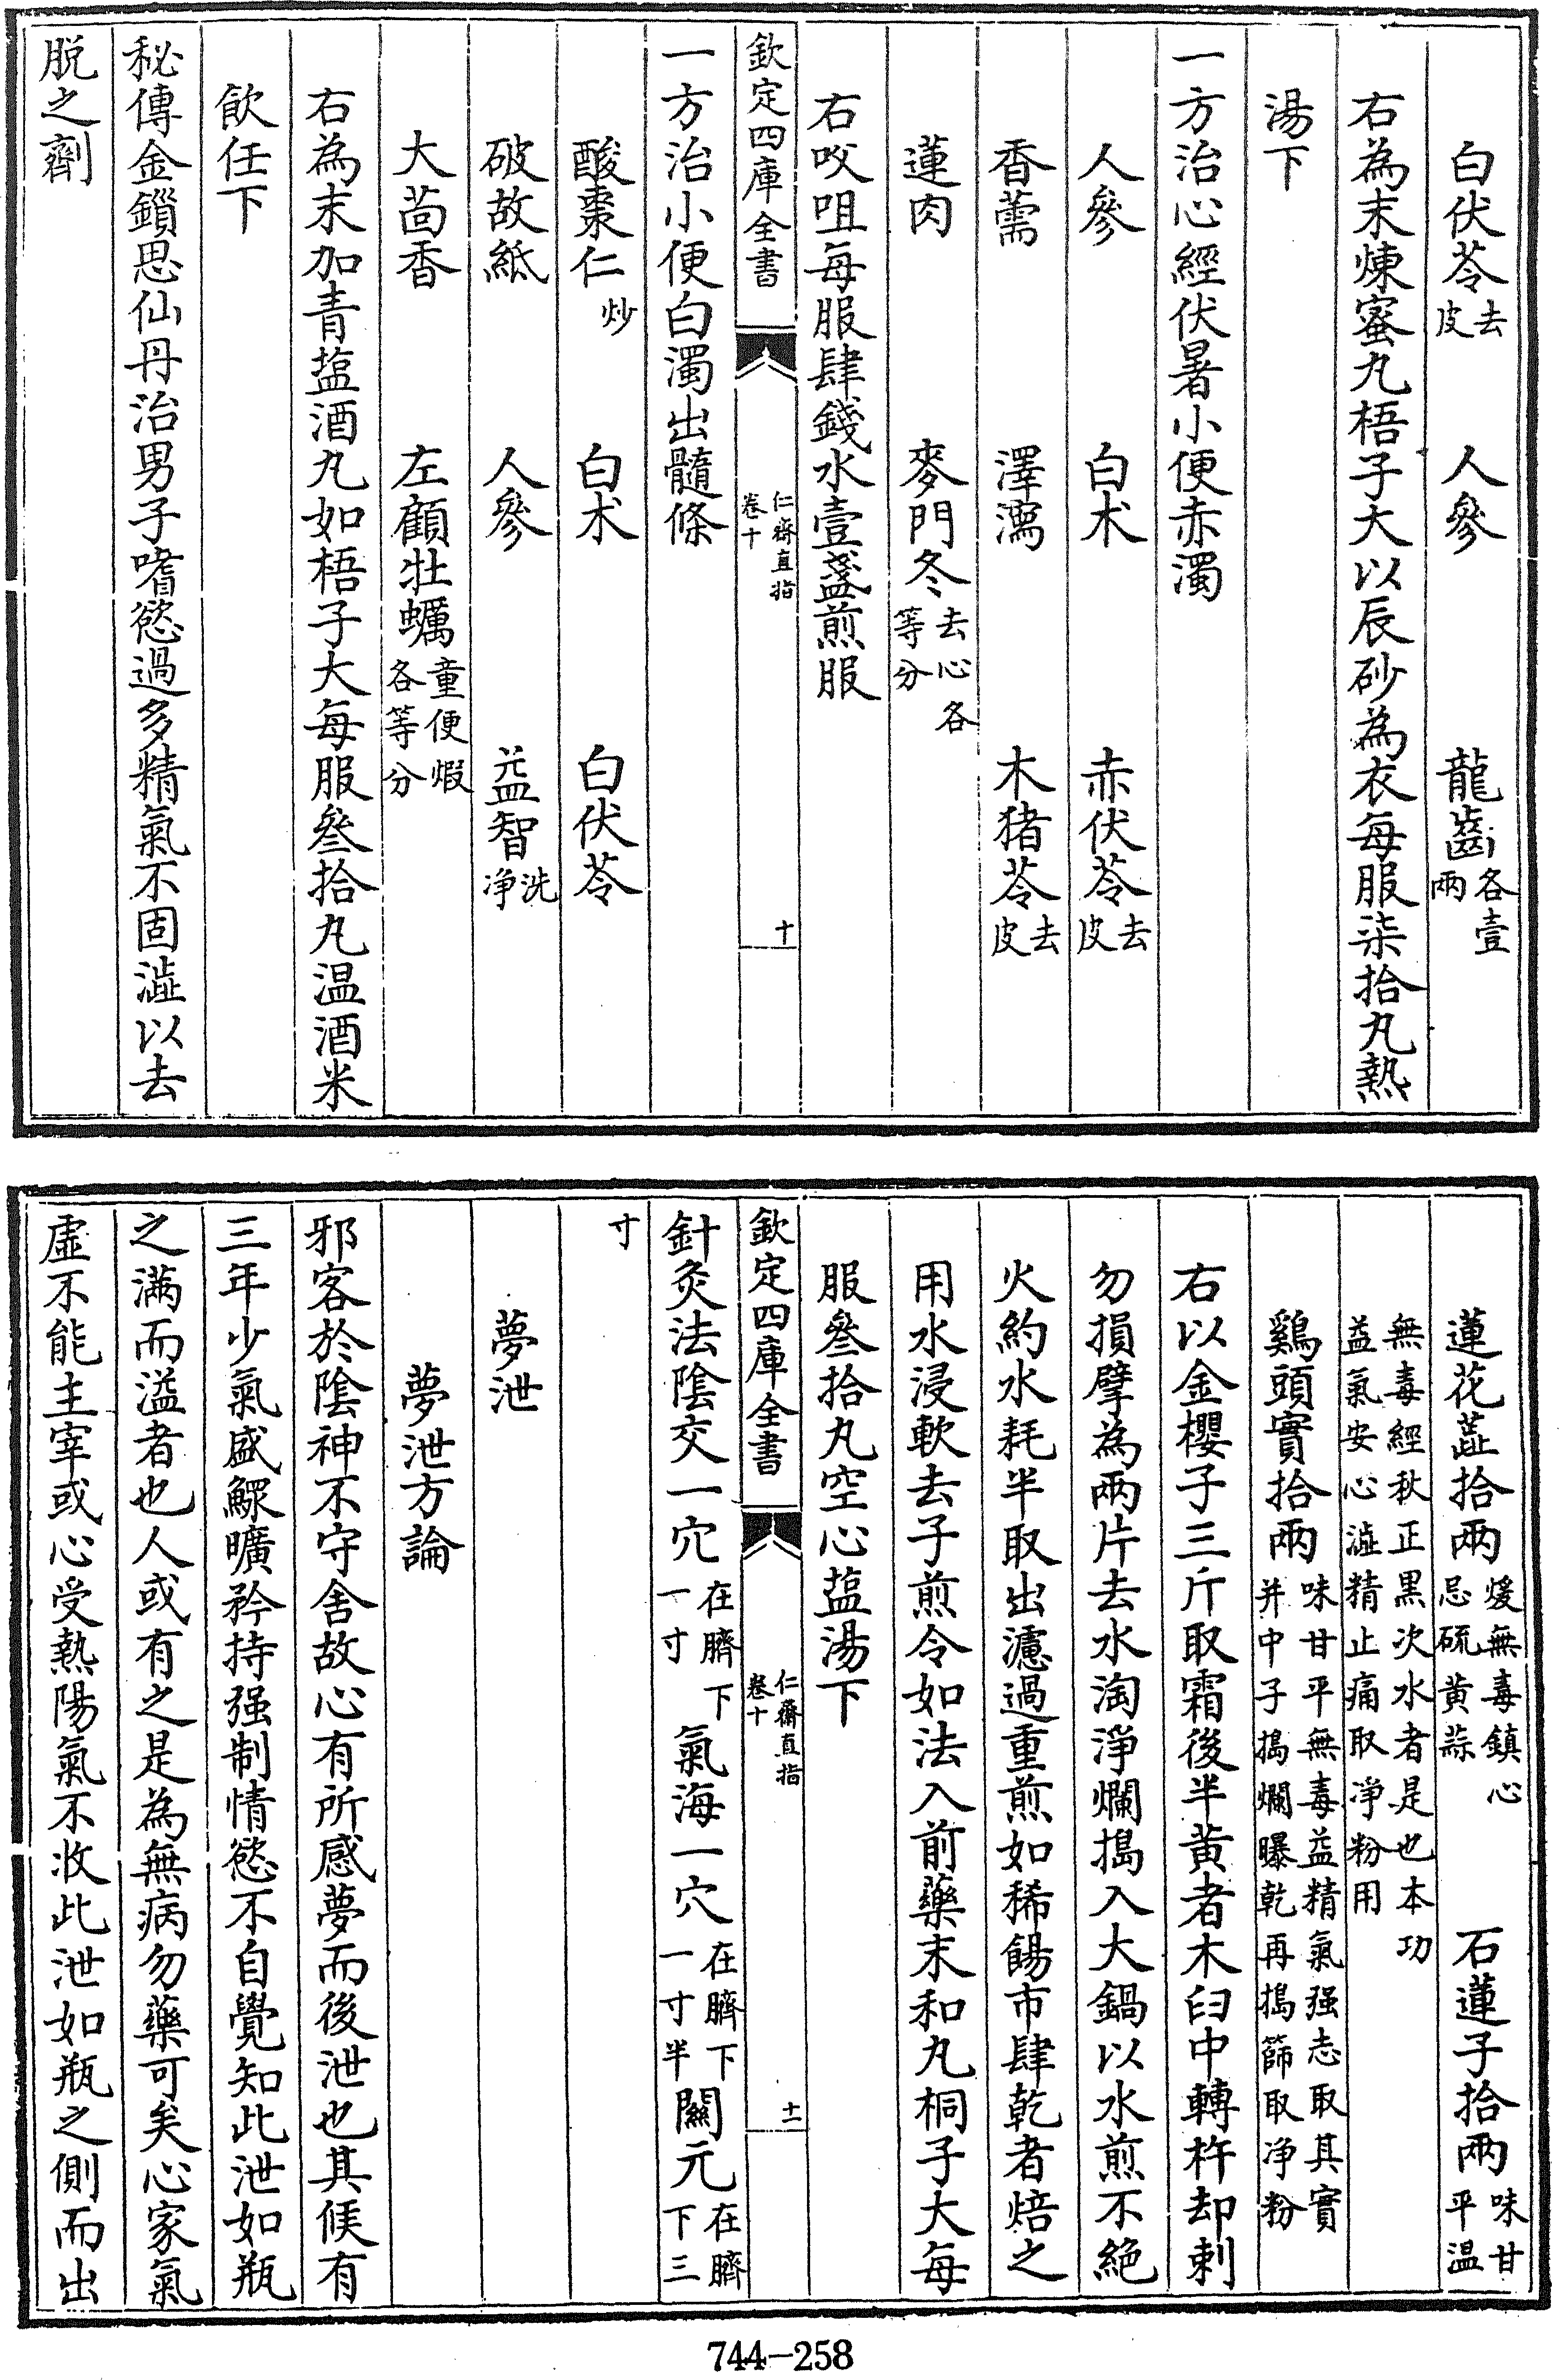 白伏苓去皮　人參　龍齒各壹兩
右為末煉蜜丸梧子大以辰砂為衣每服柒拾丸熱
湯下
一方治心經伏暑小便赤濁
人參　白术　赤伏苓去皮
香薷　澤瀉　木猪苓去皮
蓮肉　麥門冬去心各等分
右㕮咀每服肆錢水壹盞煎服
欽定四庫全書　仁齋直指卷十　十
一方治小便白濁出髓條
酸棗仁炒　白术　白伏苓
破故紙　人參　益智洗净
大茴香　左顧牡蠣童便煆各等分
右為末加青盐酒丸如梧子大每服叁拾丸温酒米
飲任下
秘傳金鎖思仙丹治男子嗜慾過多精氣不固澁以去
脱之劑
蓮花蕋拾兩煖無毒鎮心忌硫黄蒜　石蓮子拾兩味甘平温
無毒經秋正黒次水者是也本功益氣安心澁精止痛取凈粉用
鷄頭實拾兩味甘平無毒益精氣强志取其實并中子搗爛曝乾再搗篩取净粉
右以金櫻子三斤取霜後半黄者木臼中轉杵却刺
勿損擘為兩片去水淘淨爛搗入大鍋以水煎不絶
火約水耗半取出濾過重煎如稀餳市肆乾者焙之
用水浸軟去子煎令如法入前藥末和丸桐子大每
服叁拾丸空心盐湯下
欽定四庫全書　仁齋直指卷十　十一
針灸法陰交一穴在臍下一寸　氣海一穴在臍下一寸半　關元在臍下三
寸
夢泄
夢泄方論
邪客於陰神不守舍故心有所感夢而後泄也其候有
三年少氣盛鰥曠矜持强制情慾不自覺知此泄如瓶
之滿而溢者也人或有之是為無病勿藥可矣心家氣
虛不能主宰或心受熱陽氣不收此泄如瓶之側而出
744-258